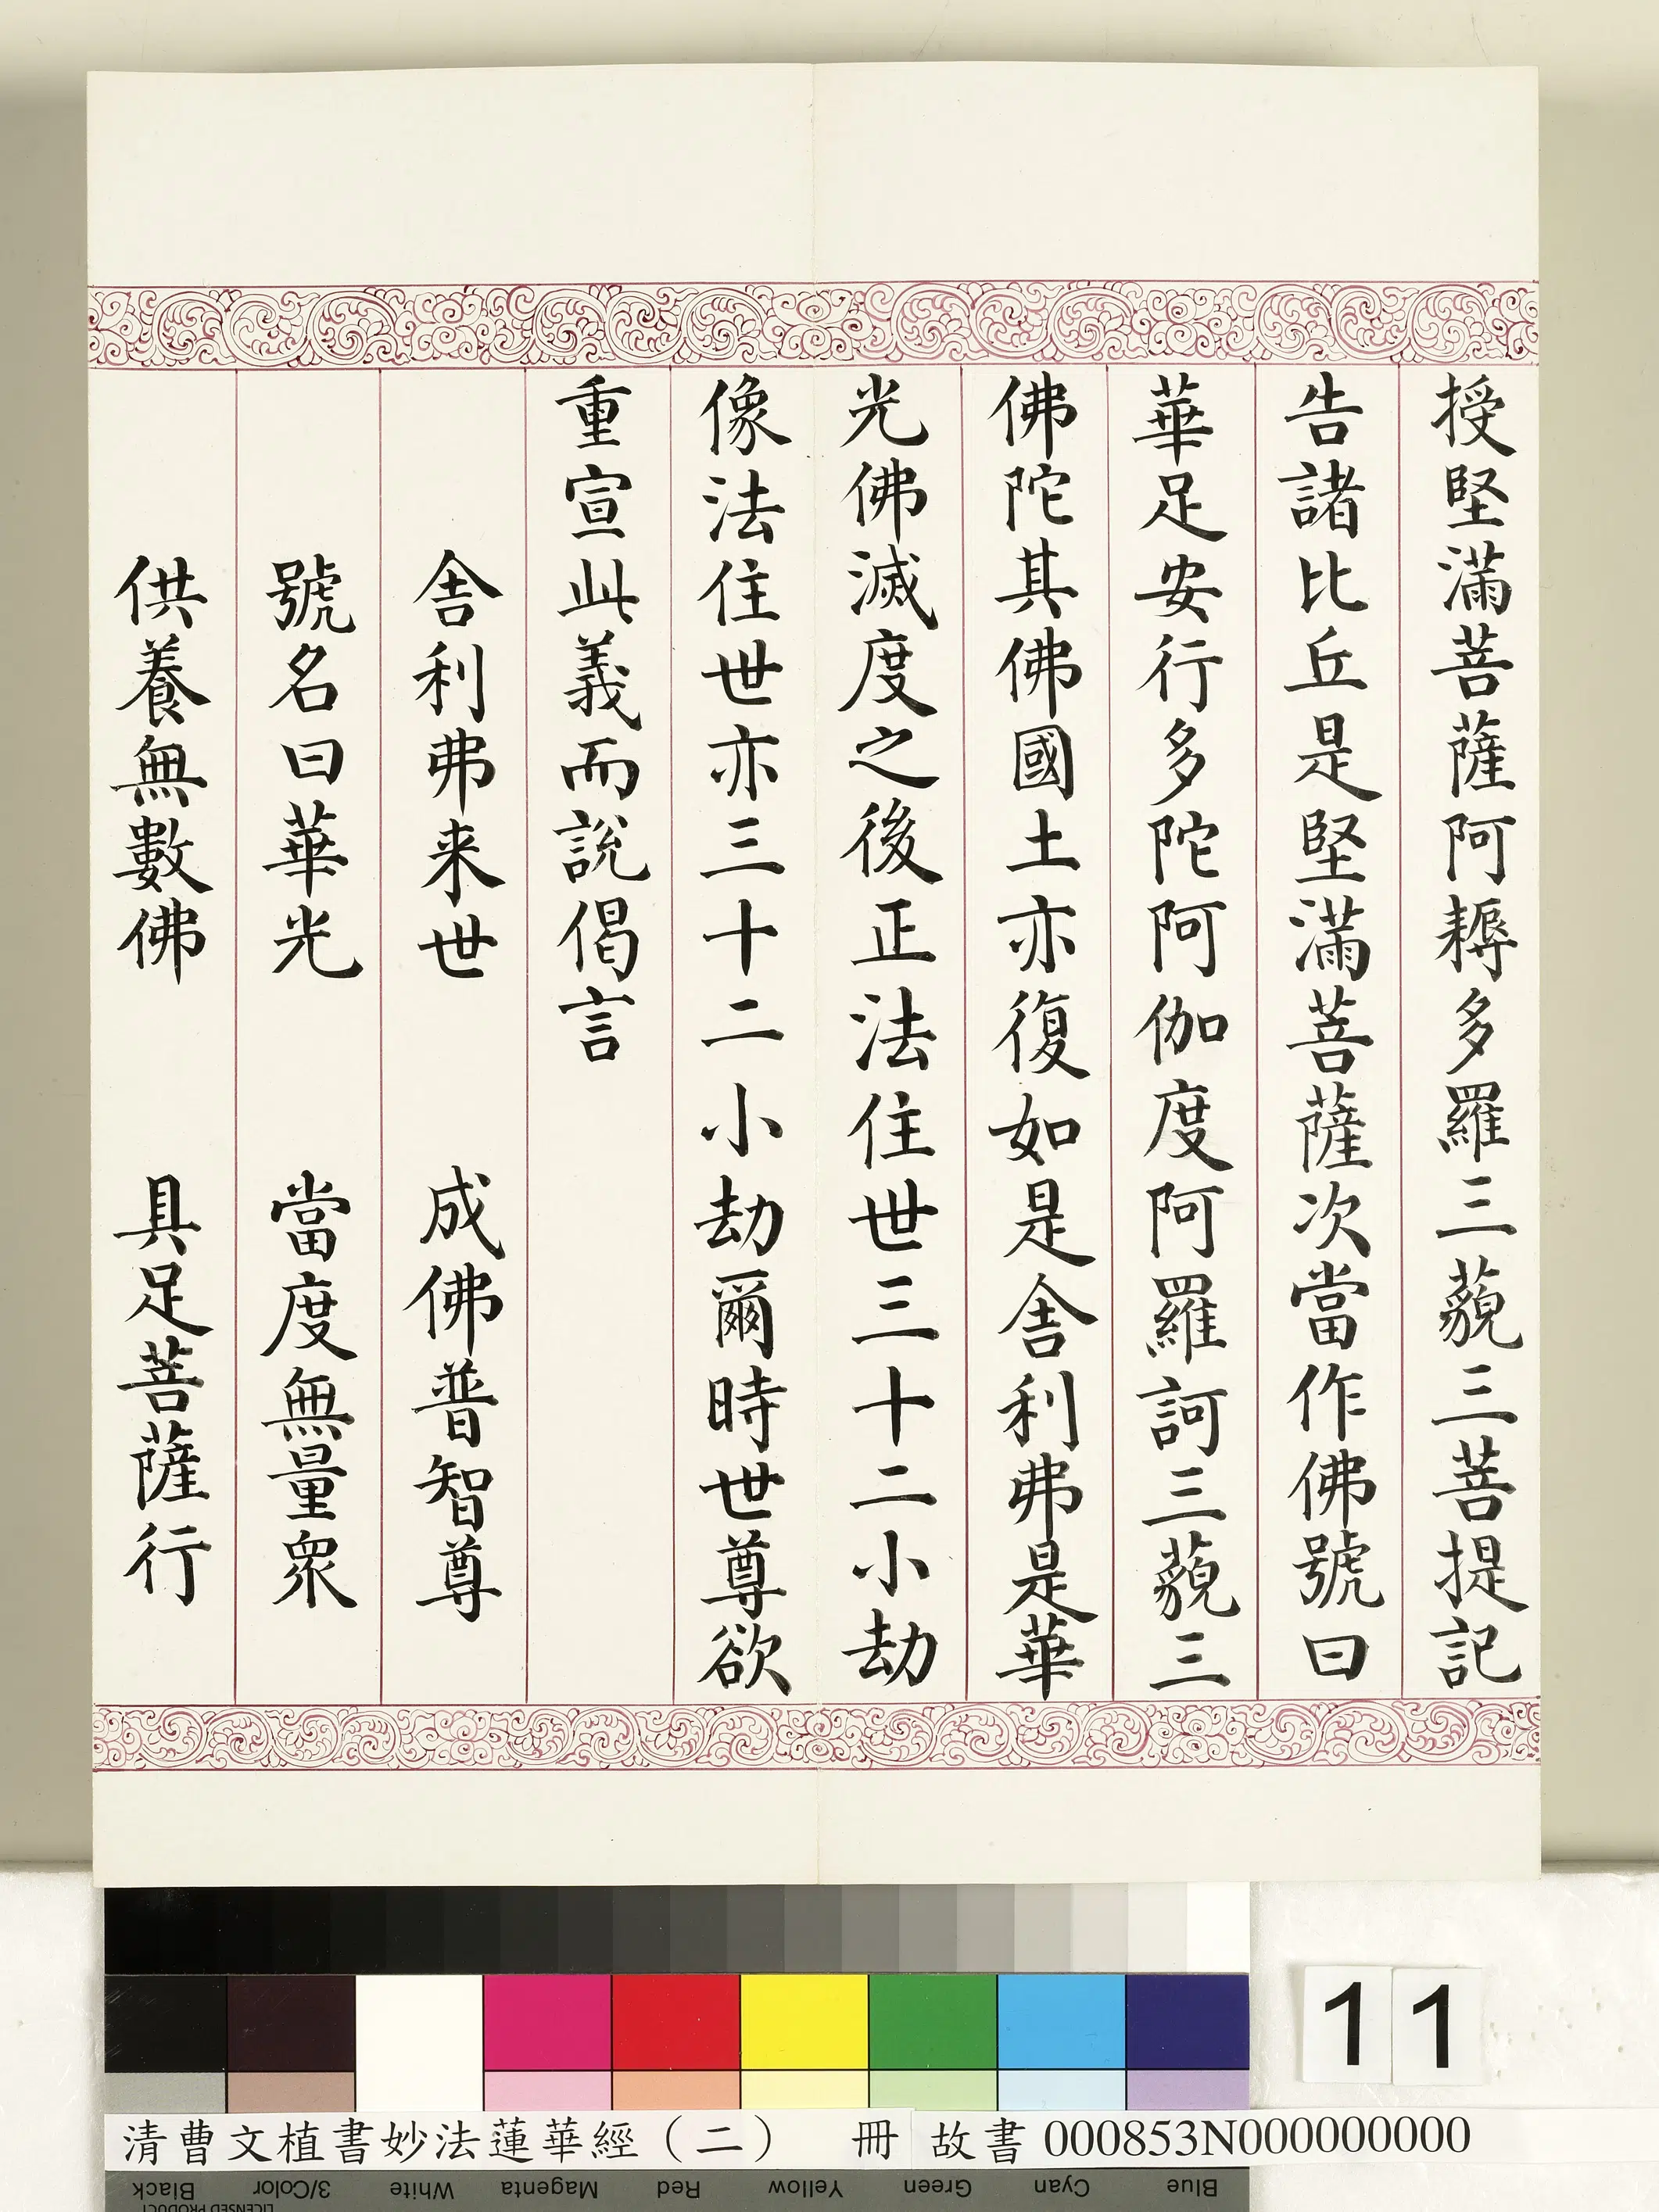 授堅滿菩薩阿耨多羅三藐三菩提記
告諸比丘是堅滿菩薩次當作佛號曰
華足安行多陀阿伽度阿羅訶三藐三
佛陀其佛國土亦復如是舍利弗是華
光佛滅度之後正法住世三十二小劫
像法住世亦三十二小劫爾時世尊欲
重宣此義而說偈言
舍利弗来世　成佛普智尊
號名曰華光　當度無量衆
供養無數佛　具足菩薩行
11
清曹文植書妙法蓮華經（二）　冊　故書 000853N000000000
Black 3/Color White Magenta Red Yellow Green Cyan Blue
LICENSED PRODUCT